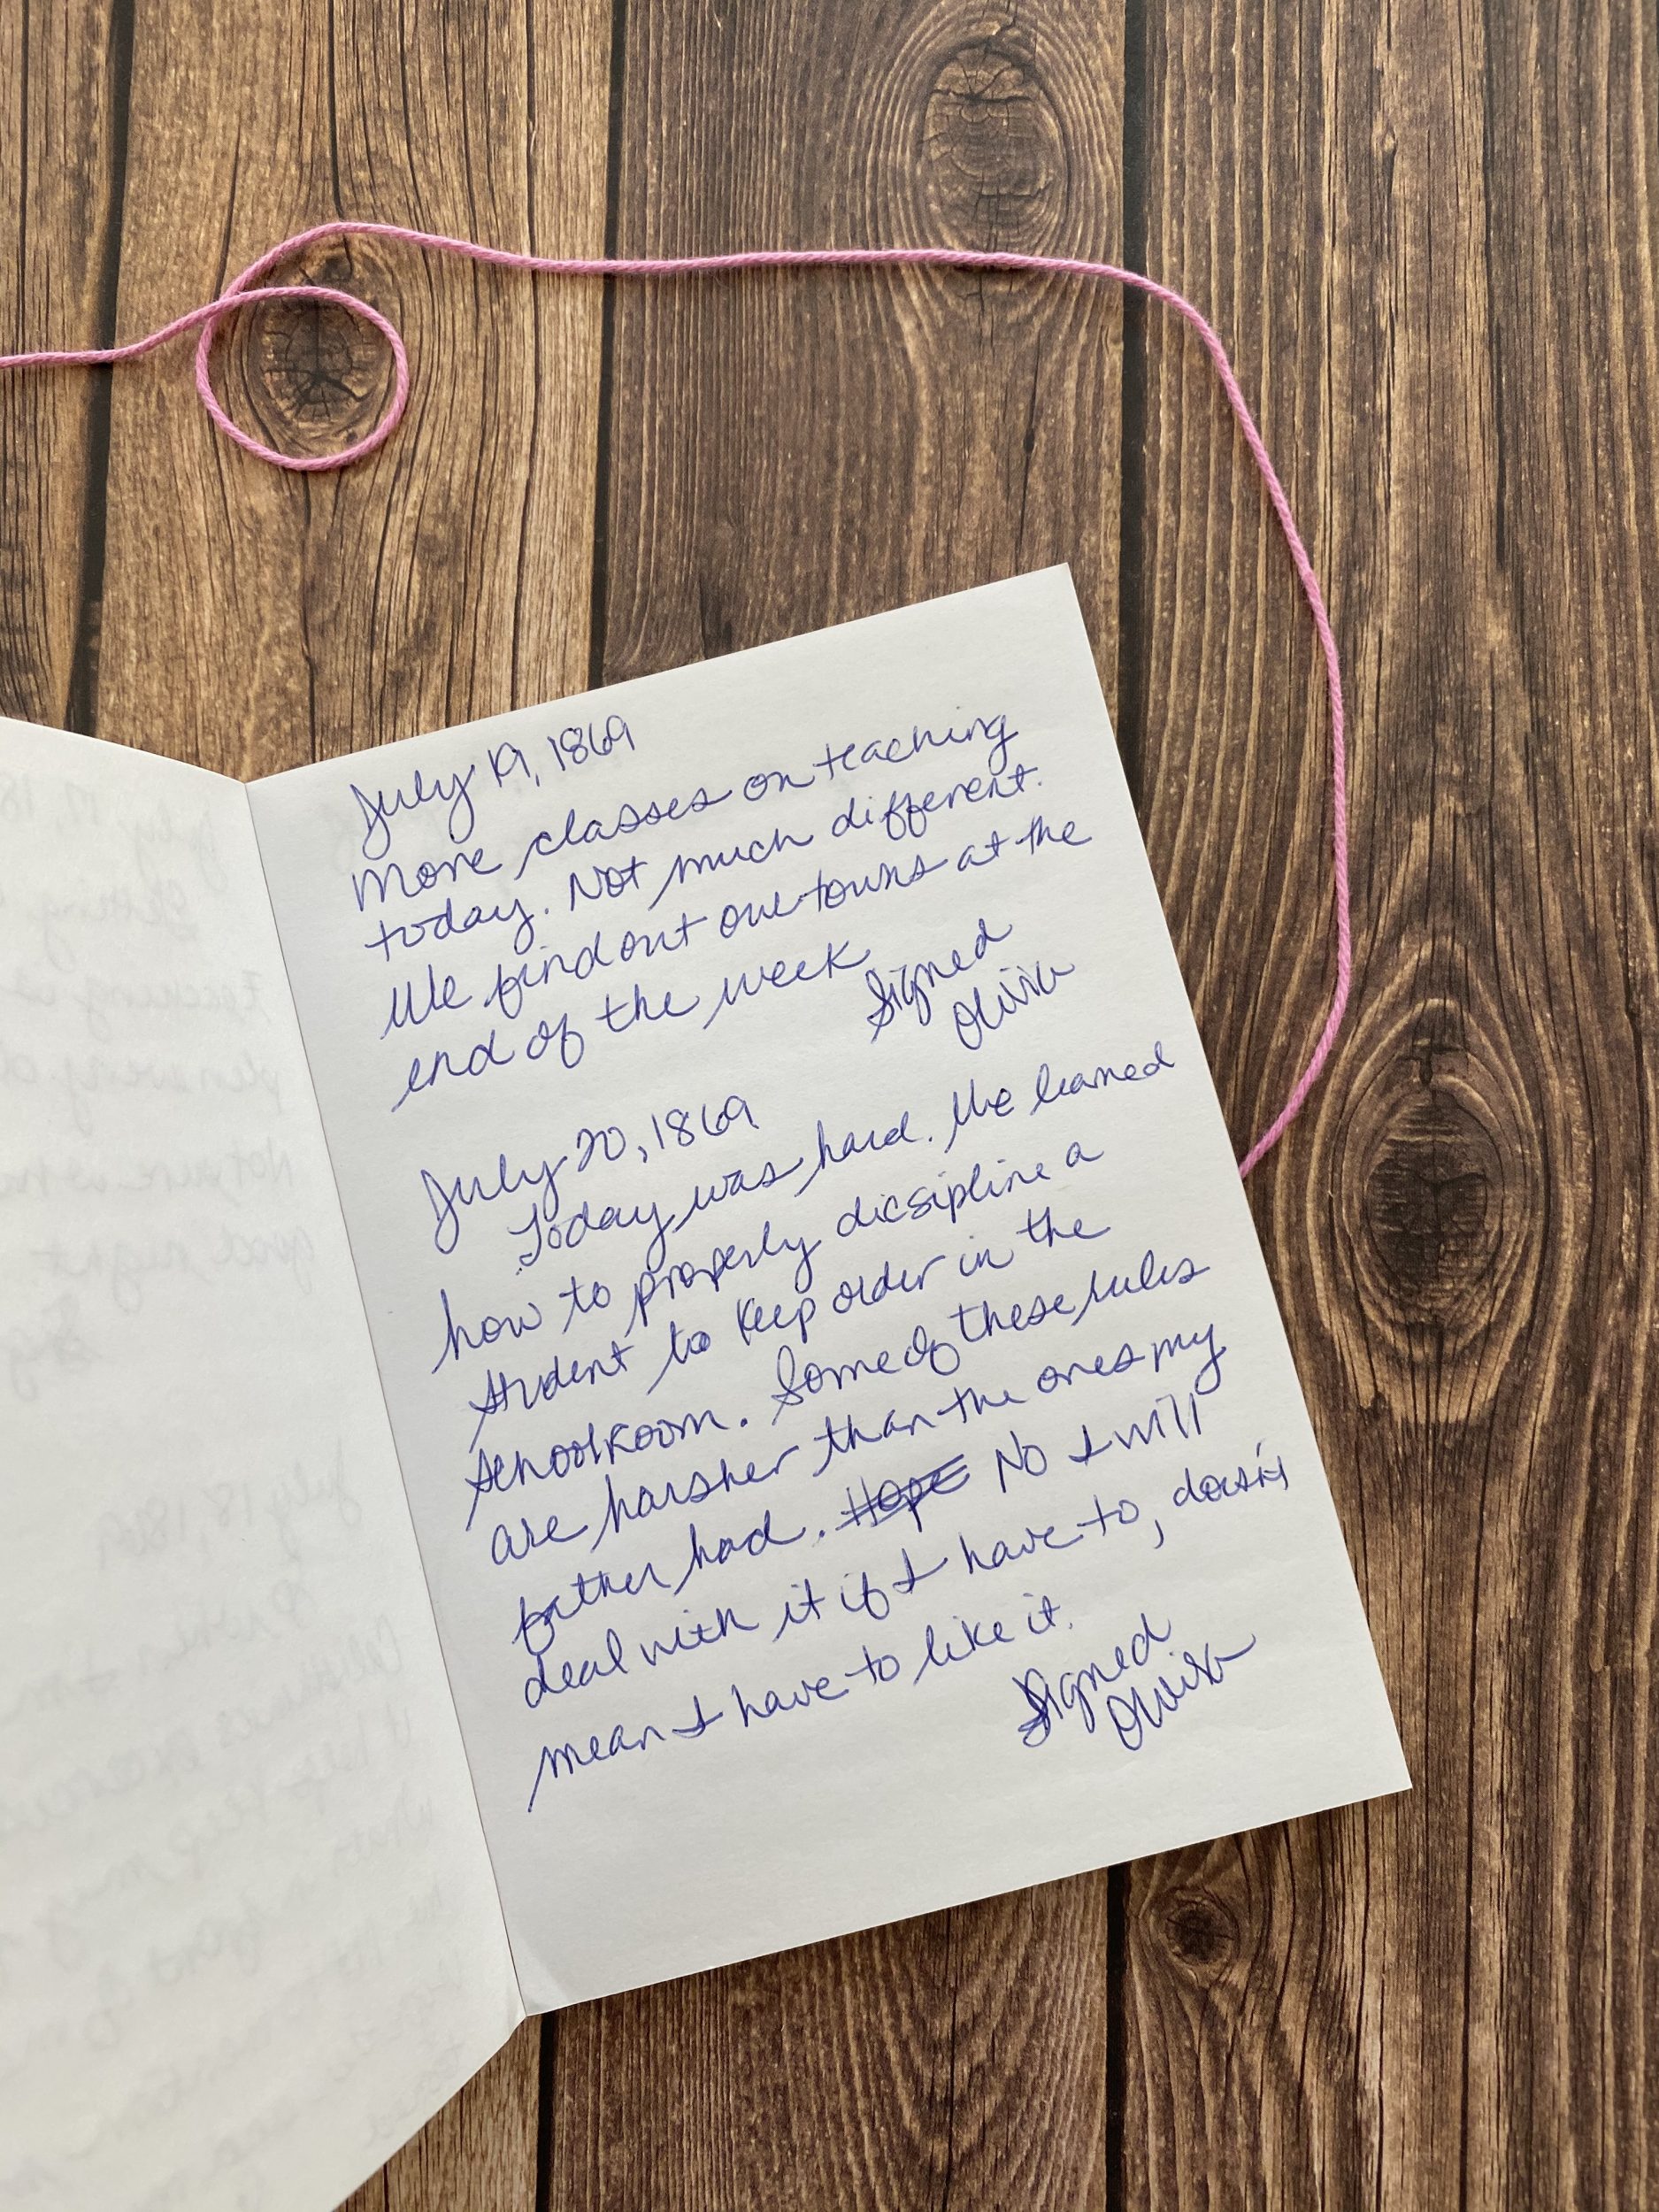 July 19, 1869
More classes on teaching
today. Not much different.
We find out our towns at the
end of the week
Signed
Olivia
July 20, 1869
Today was hard. We learned
how to properly dicsipline a
student to keep order in the
schoolroom. Some of these rules
are harsher than the ones my
father had. Hope No I will
deal with it if I have to, doesn't
mean I have to like it.
Signed
Olivia